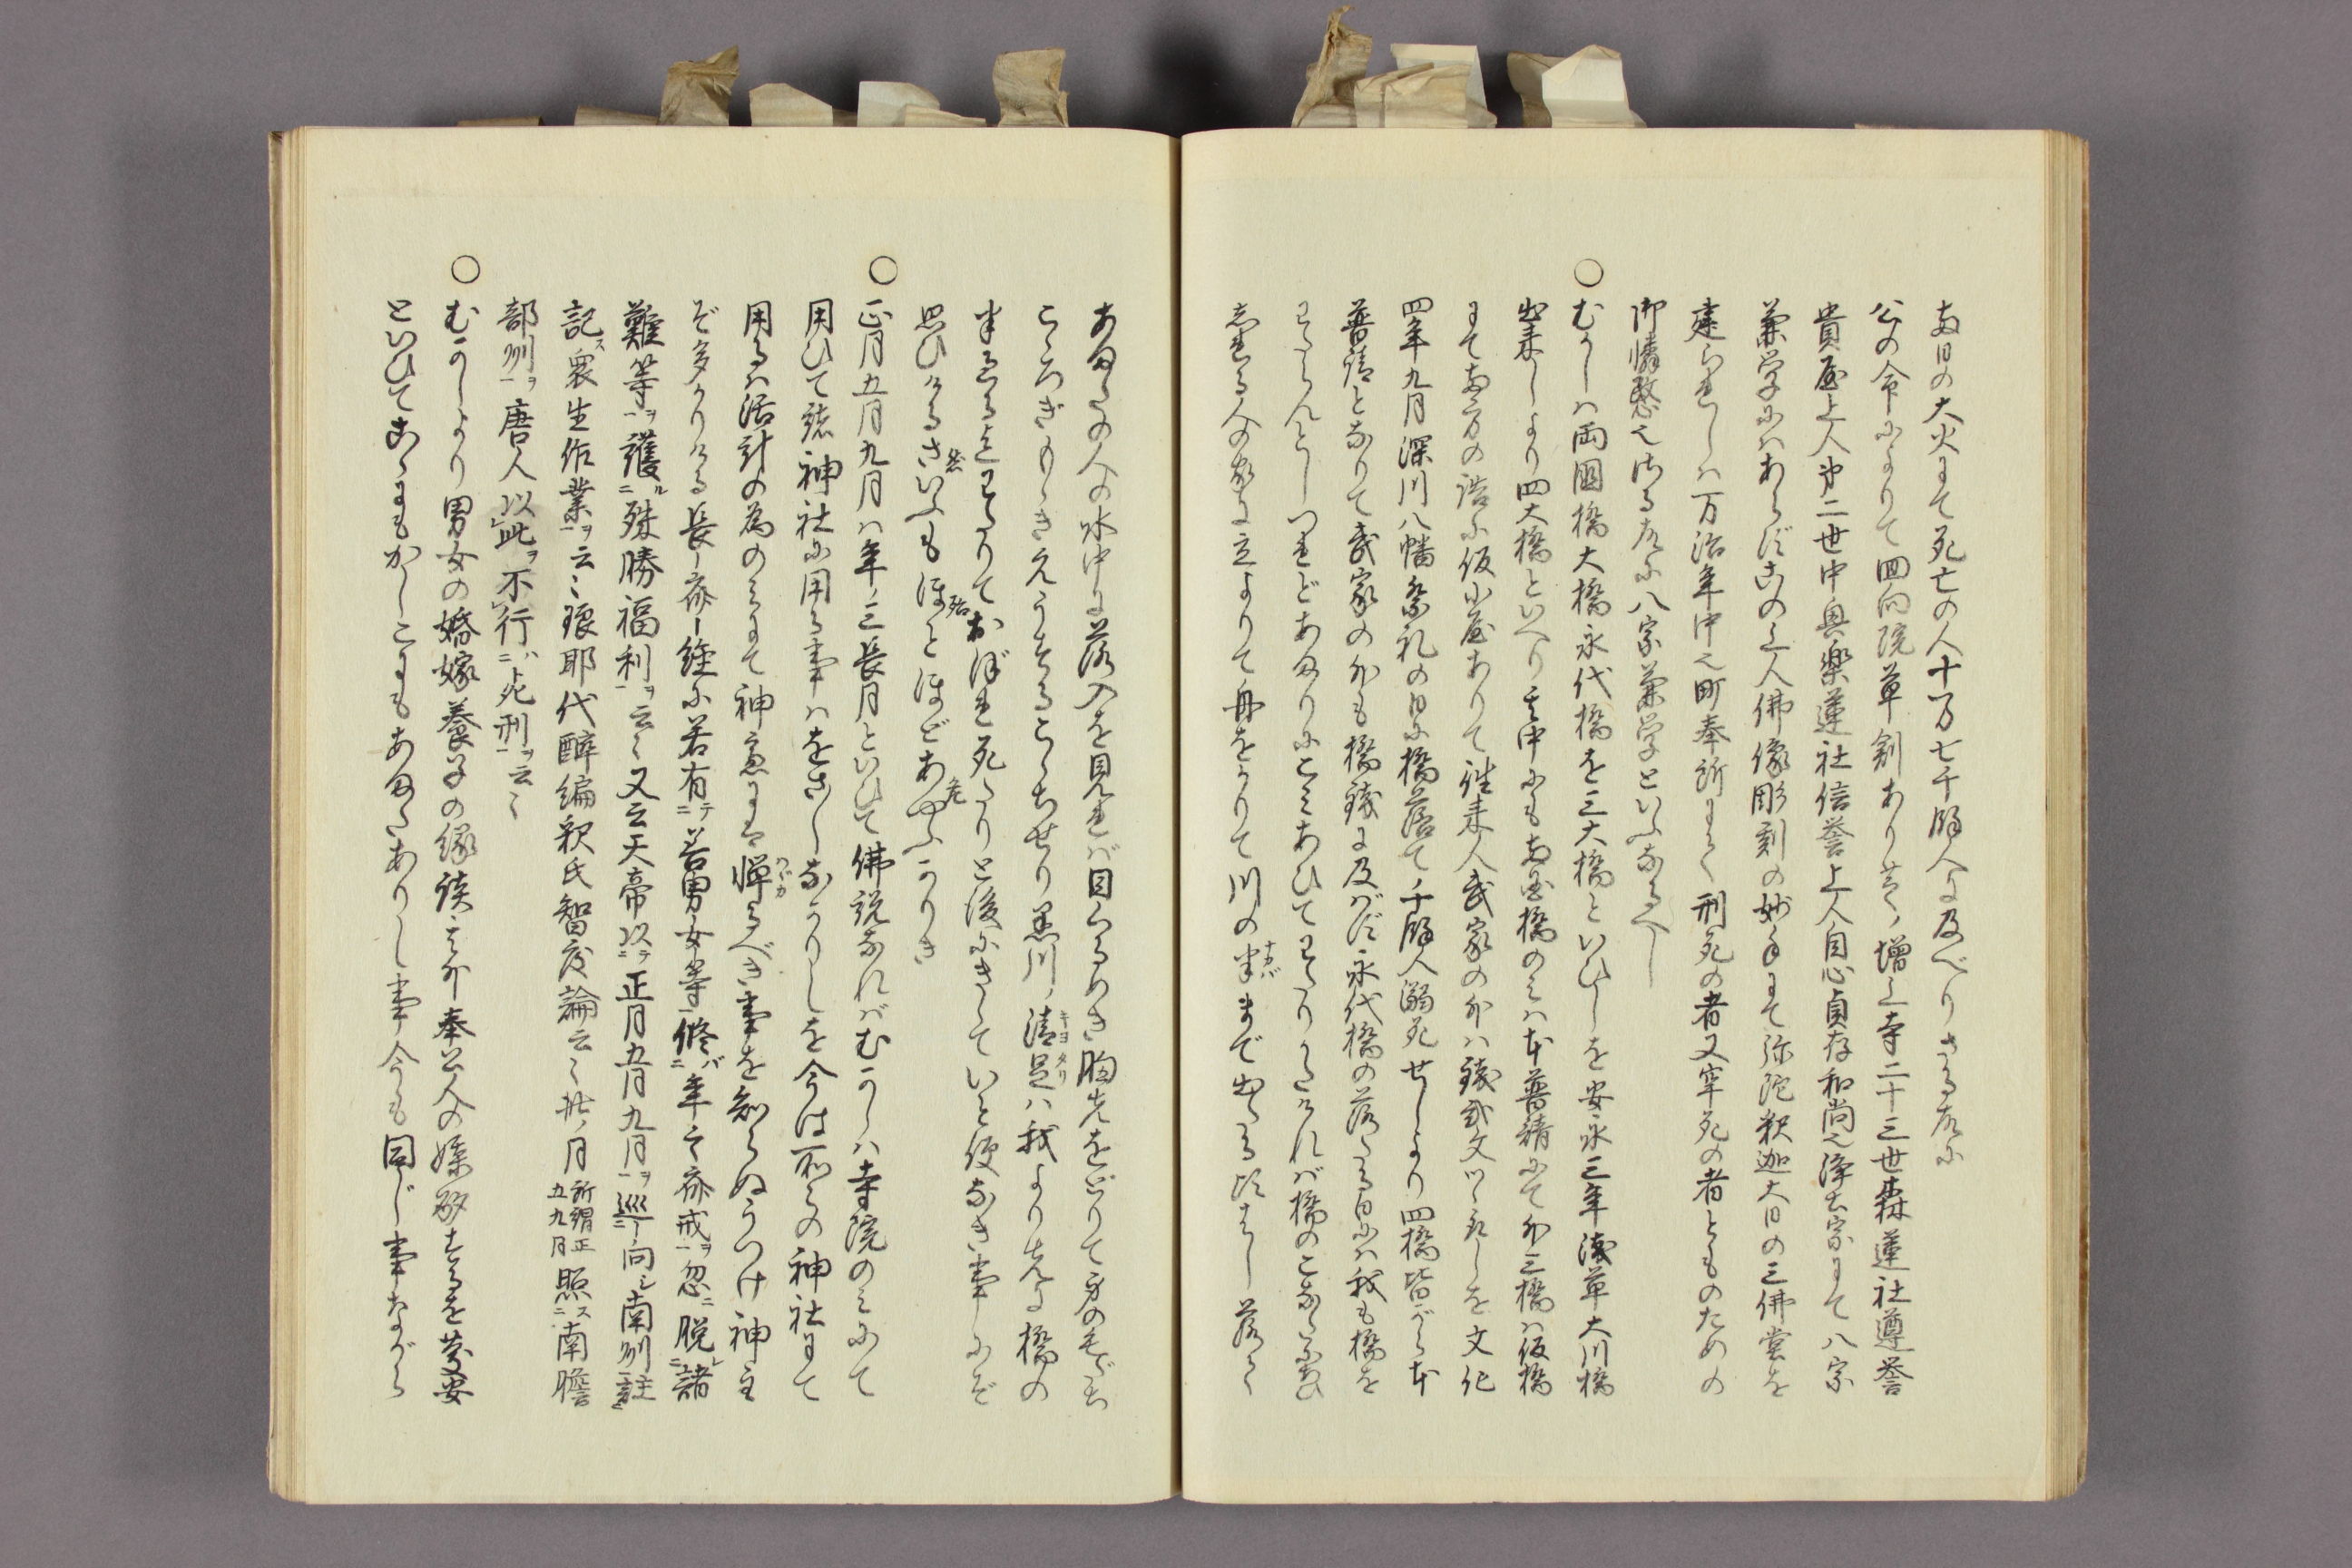 両日の大火にて死亡の人十万七千餘人に及べりさる故に
公の命によりて回向院草創あり其ノ増上寺二十三世森蓮社遵誉
貴屋上人第二世中興楽蓮社信誉上人自心貞存和尚之浄土宗にて八宗
兼学にハあらずこの上人佛像彫刻の妙手にて弥陀釈迦大日の三佛堂を
建られしハ万治年中之町奉所にて刑死の者又牢死の者とものための
御憐愍之Сる故に八宗兼学といふなるべし
○むかしハ両國橋大橋永代橋を三大橋といひしを安永三年浅草大川橋
出来しより四大橋といへり其中にも両国橋のミハ本普請にて外三橋ハ仮橋
にて両方の詰に仮小屋ありて往来人武家の外ハ銭弐文ツヽ取しを文化
四年九月深川八幡祭礼の日に橋落て千餘人溺死せしより四橋皆ながら本
普請となりて武家の外も橋銭に及バず永代橋の落たる日にハ我も橋を
わたらんとしつれどあまりにこミあひてわたりかたけれバ橋のこなたに
志れる人の家に立よりて舟をかりて川の半ナカバまで出たる比はし落て
あまたの人の水中に落入を見れバ目くるめき胸先をどりて身の毛もいよ
こゝろぎもゝきえうするこゝちせり黒川ノ清足キヨタリハ我より先に橋の
半過る迄わたりておぼれ死たりと後にきゝていと便なき事にぞ
思ひけるさ然いふもほ殆とほどあや危ふかりき
○正月五月九月ハ年ノ三長月といひて佛説なれバむかしハ寺院のミにて
用ひて諸神社に用る事ハをさ〳〵なかりしを今は所々の神社にて
用るハ活計の為のミにて神慮にハ憚ハバカるべき事を知らぬうつけ神主
ぞ多かりける長斎経に若有テニ善男女等一修バニ年三斎戒ヲ一忽ニ脱レニ諸
難等ヲ一護ルニ殊勝福利ヲ一云〻又云天帝以テニ正月五月九月ヲ一巡リニ向シ南州一註ミ
記ス衆生作業ヲ一云〻瑯耶代酔編釈氏智度論云〻此ノ月所謂正五九月照スニ南贍
部州ヲ一唐人以レ此ヲ不レ行ハニ死刑ヲ一云〻
○むかしより男女の婚嫁養子の縁談又ハ奉公人の媒酌する を慶安
といひてこゝにもかしこにもあまたありし事今も同じ事ながら